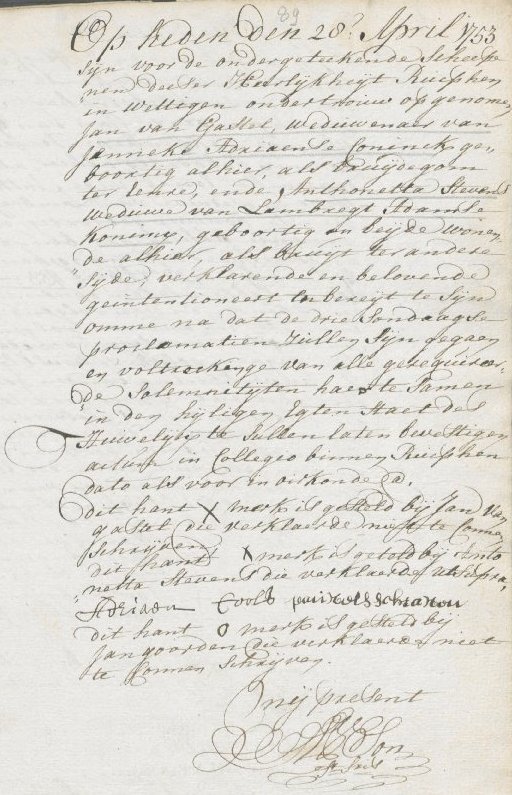 89
Op heden den 28.e April 1753
sijn voor de ondergeteekende Scheepe
nen deeser Heerlijkheyt Rucphen
in wettigen ondertrouw opgenomen
Jan van Gastel, weduwenaer van
Janneke Adriaense Coninck ge,
boortig alhier, als bruijdegom
ter eenre, ende Anthonetta Stevens
weduwe van Lambregt Adamse
Koninx, geboortig en beijde wonen,
de alhier, als bruijt ter andere
sijde, verklarende en belovende
geintentioneert en bereijt te sijn
omme na dat de drie Sondaagse
proclamatien zullen sijn gegaen
en voltreckinge van alle gerequireer,
de Solemnitijten haer te samen
in den hijligen Egten Staet des
Huwelijx te sullen laten bevestigen
actum in Collegio binnen Rucphen
dato als voor in oirkonde
dit hant X merk is gestelt bij Jan van
gastel die verklaerde niet te Conne
Schrijven,
dit hant X merk is gestelt bij Anto
netta Stevens die verklaerde ut supra,
Adriaen Cools
dit hant O merk is gestelt bij
Jan goorden die verklaerde niet
te Connen Schrijven.
mij present